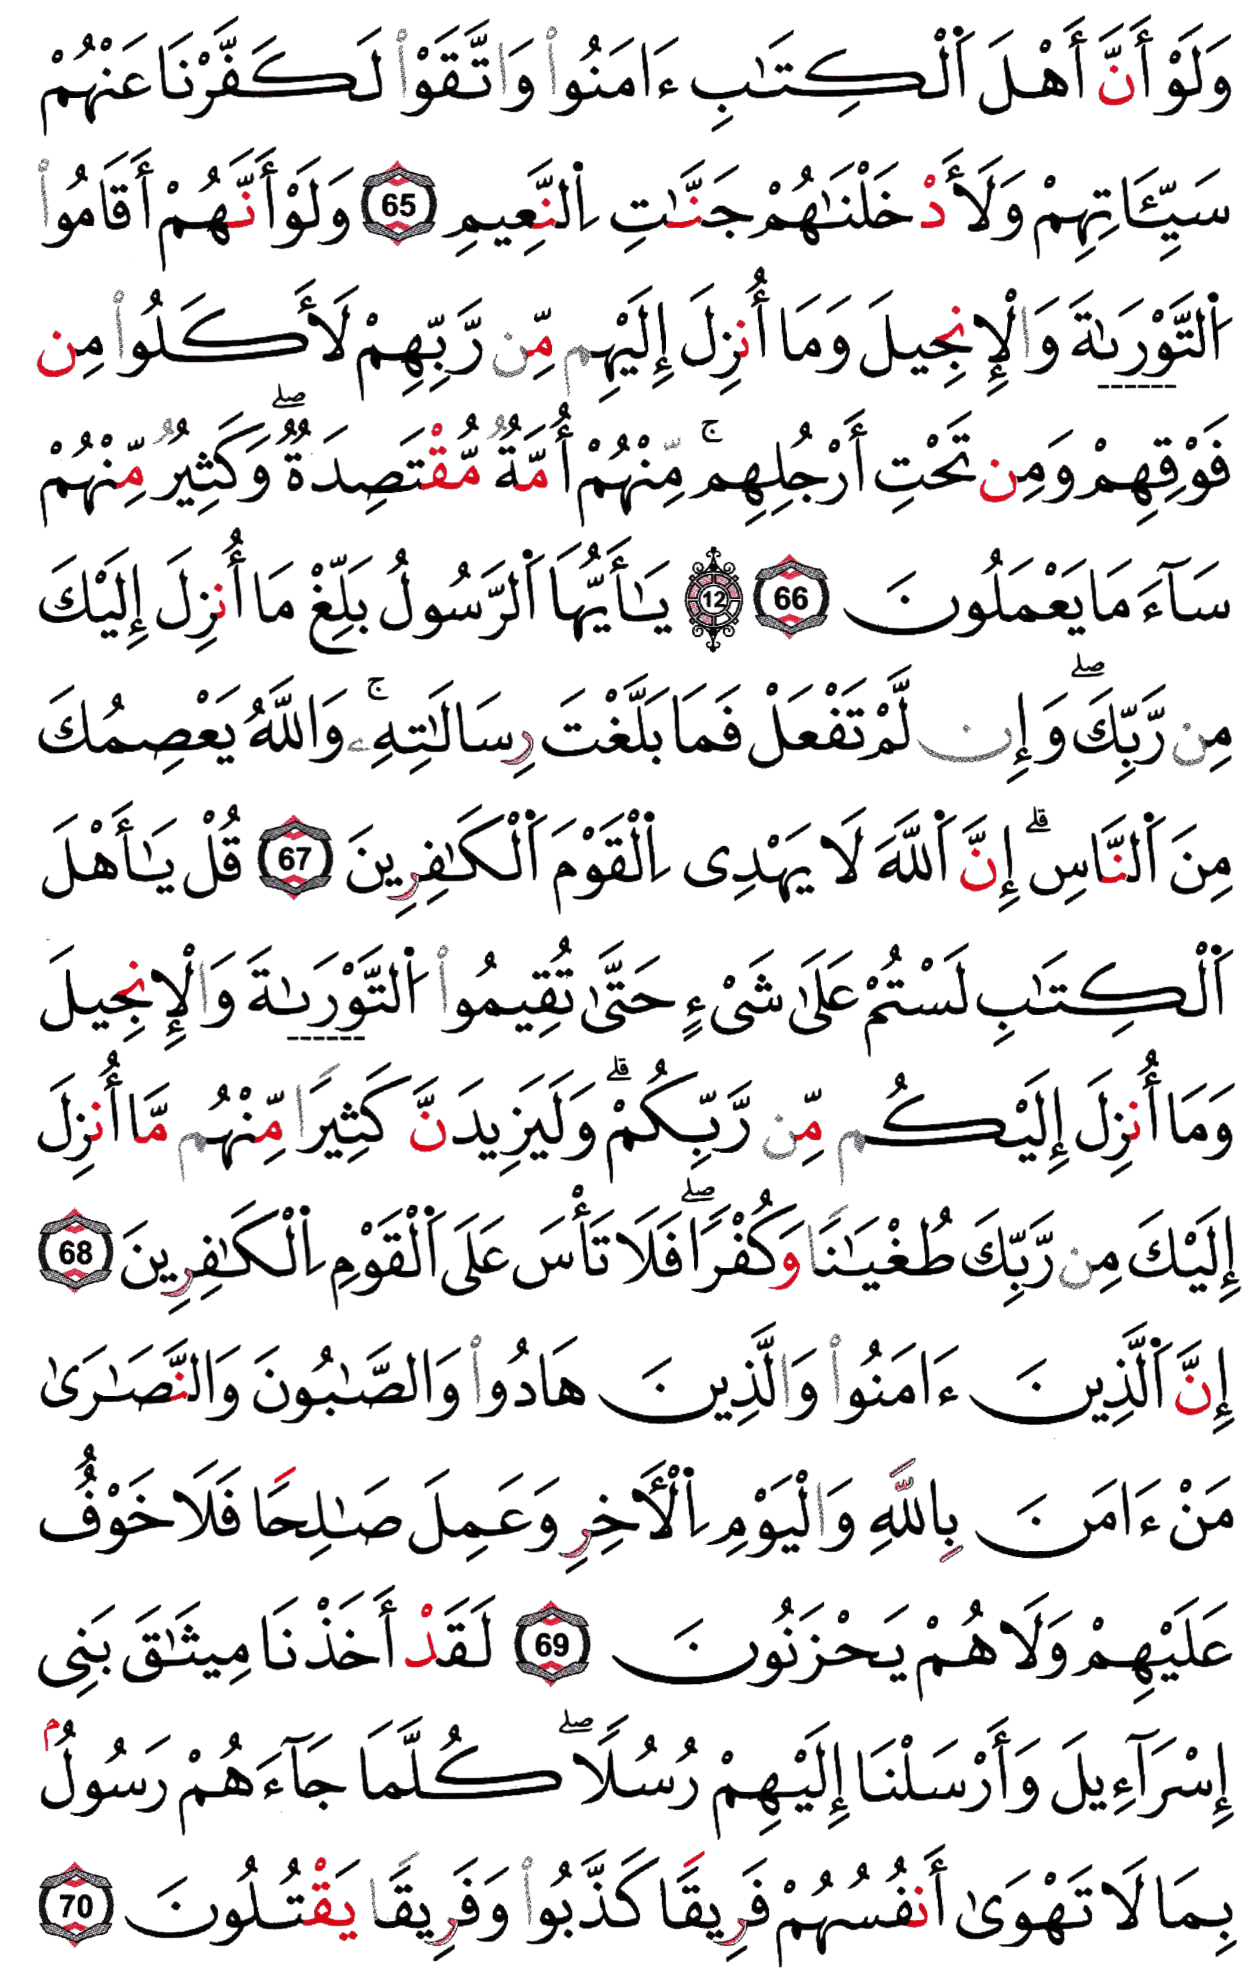 وَلَوْ أَنَّ أَهْلَ اَ۬لْكِتَٰبِ ءَامَنُواْ وَاتَّقَوْاْ لَكَفَّرْنَا عَنْهُمْ
سَيِّـَٔاتِهِمْ وَلَأَدْخَلْنَٰهُمْ جَنَّٰتِ اِ۬لنَّعِيمِ 65 وَلَوْ أَنَّهُمْ أَقَامُواْ
اُ۬لتَّوْرَىٰةَ وَالْإِنجِيلَ وَمَا أُنزِلَ إِلَيْهِم مِّن رَّبِّهِمْ لَأَكَلُواْ مِن
فَوْقِهِمْ وَمِن تَحْتِ أَرْجُلِهِمۚ مِّنْهُمْ أُمَّةٌ مُّقْتَصِدَةٌۖ وَكَثِيرٌ مِّنْهُمْ
سَآءَ مَا يَعْمَلُونَ 66 12 يَٰأَيُّهَا اَ۬لرَّسُولُ بَلِّغْ مَا أُنزِلَ إِلَيْكَ
مِن رَّبِّكَۖ وَإِن لَّمْ تَفْعَلْ فَمَا بَلَّغْتَ رِسَالَٰتِهِۦۚ وَاللَّهُ يَعْصِمُكَ
مِنَ اَ۬لنَّاسِۗ إِنَّ اَ۬للَّهَ لَا يَهْدِى اِ۬لْقَوْمَ اَ۬لْكَٰفِرِينَ 67 قُلْ يَٰأَهْلَ
اَ۬لْكِتَٰبِ لَسْتُمْ عَلَىٰ شَىْءٍ حَتَّىٰ تُقِيمُواْ اُ۬لتَّوْرَىٰةَ وَالْإِنجِيلَ
وَمَا أُنزِلَ إِلَيْكُم مِّن رَّبِّكُمْۗ وَلَيَزِيدَنَّ كَثِيرًا مِّنْهُم مَّا أُنزِلَ
إِلَيْكَ مِن رَّبِّكَ طُغْيَٰنًا وَكُفْرًاۖ فَلَا تَأْسَ عَلَى اَ۬لْقَوْمِ اِ۬لْكَٰفِرِينَ 68
إِنَّ اَ۬لَّذِينَ ءَامَنُواْ وَالَّذِينَ هَادُواْ وَالصَّٰبُونَ وَالنَّصَٰرَىٰ
مَنْ ءَامَنَ بِاللَّهِ وَالْيَوْمِ اِ۬لْأَخِرِ وَعَمِلَ صَٰلِحًا فَلَا خَوْفٌ
عَلَيْهِمْ وَلَا هُمْ يَحْزَنُونَ 69 لَقَدْ أَخَذْنَا مِيثَٰقَ بَنِى
إِسْرَآءِيلَ وَأَرْسَلْنَا إِلَيْهِمْ رُسُلًاۖ كُلَّمَا جَآءَهُمْ رَسُولُۢ
بِمَا لَا تَهْوَىٰ أَنفُسُهُمْ فَرِيقًا كَذَّبُواْ وَفَرِيقًا يَقْتُلُونَ 70